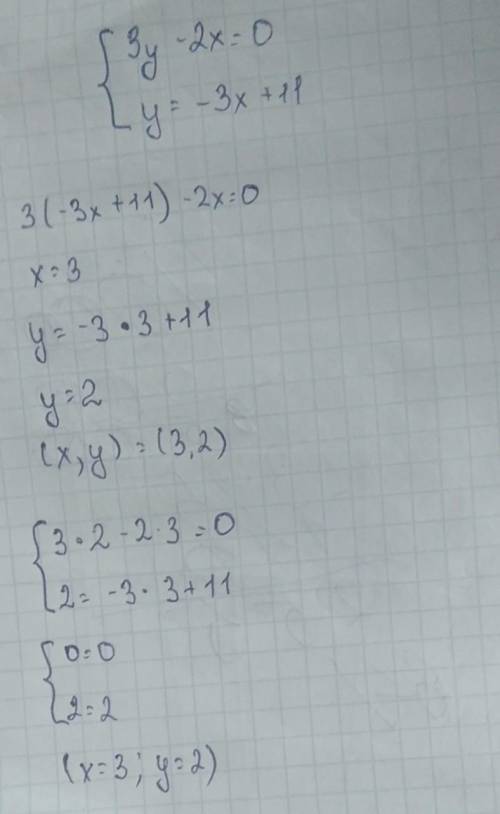 3y - 2x = 0
y = -3x + 11
3(-3x + 11) - 2x = 0
x = 3
y = -3 • 3 + 11
y = 2
(x, y) = (3, 2)
3 • 2 - 2 · 3 = 0
2 = -3 · 3 + 11
0 = 0
2 = 2
(x = 3 ; y = 2)